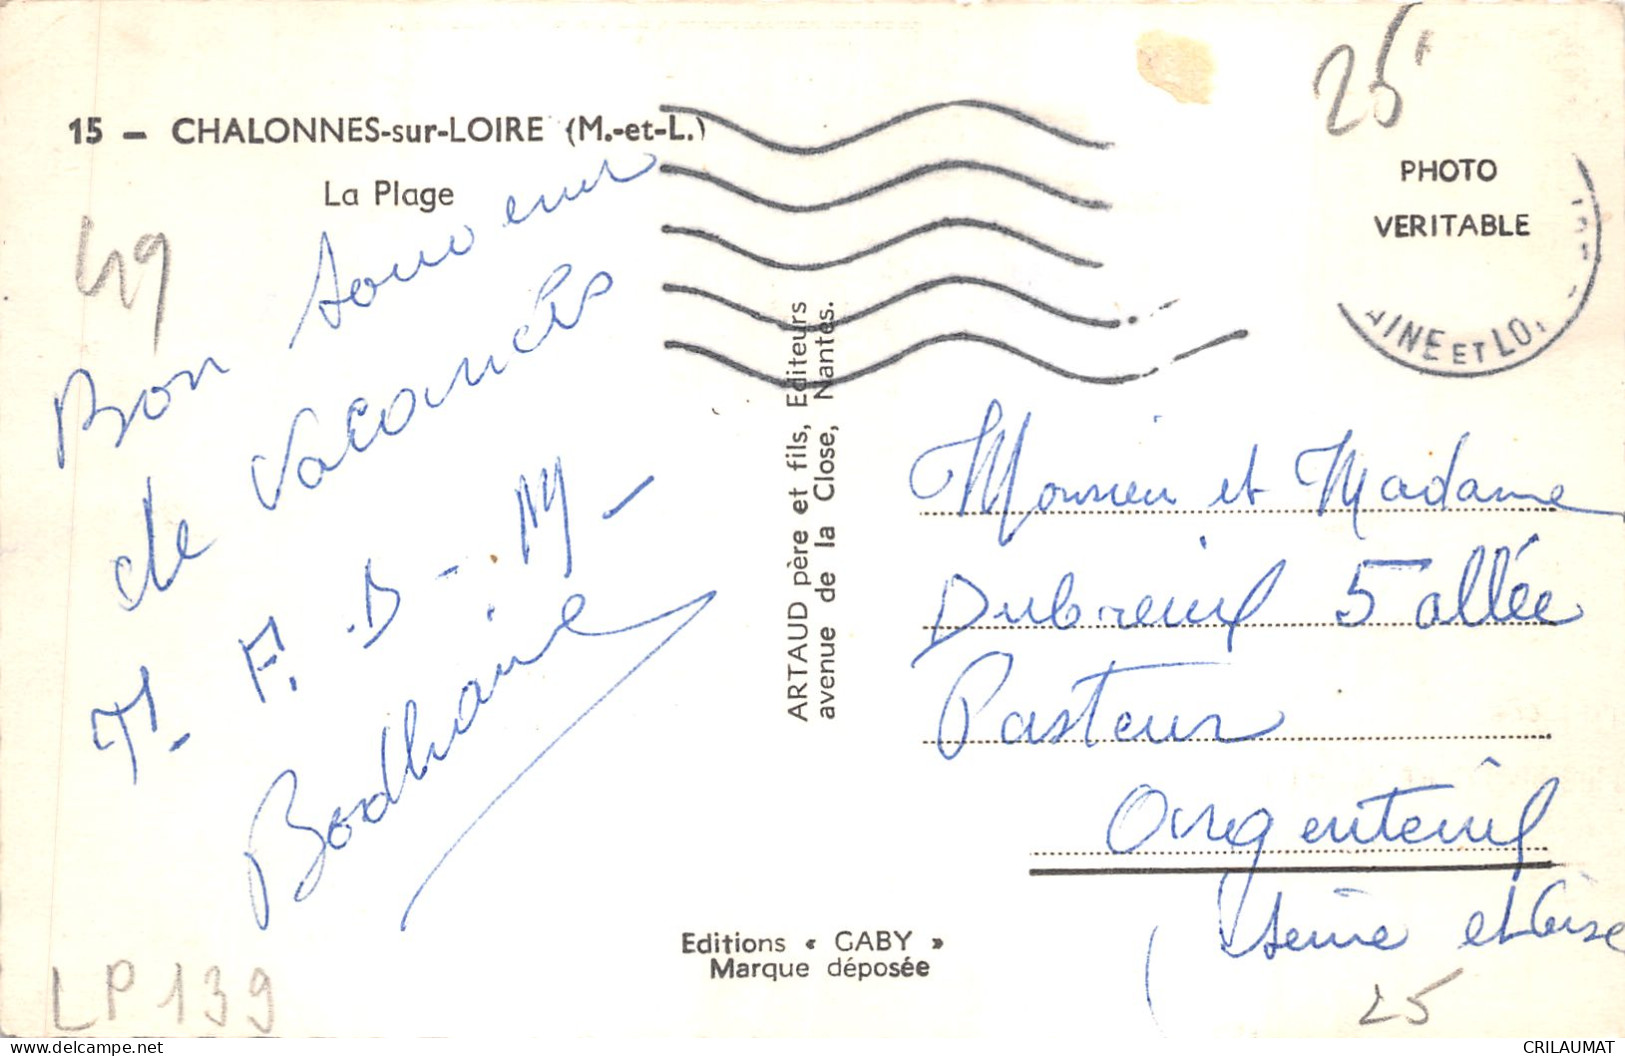 15 — CHALONNES-sur-LOIRE (M.-et-L.)
La Plage
49
Bon souvenir
de vacances
F. D - M -
Bodhaine
ARTAUD père et fils, Editeurs
avenue de la Close, Nantes.
Editions « GABY »
Marque déposée
LP 139
25F
PHOTO
VERITABLE
INE ET LOI
Monsieur et Madame
Dubreuil 5 allée
Pasteur
Argenteuil
(Seine et Oise
25
www.delcampe.net
CRILAUMAT